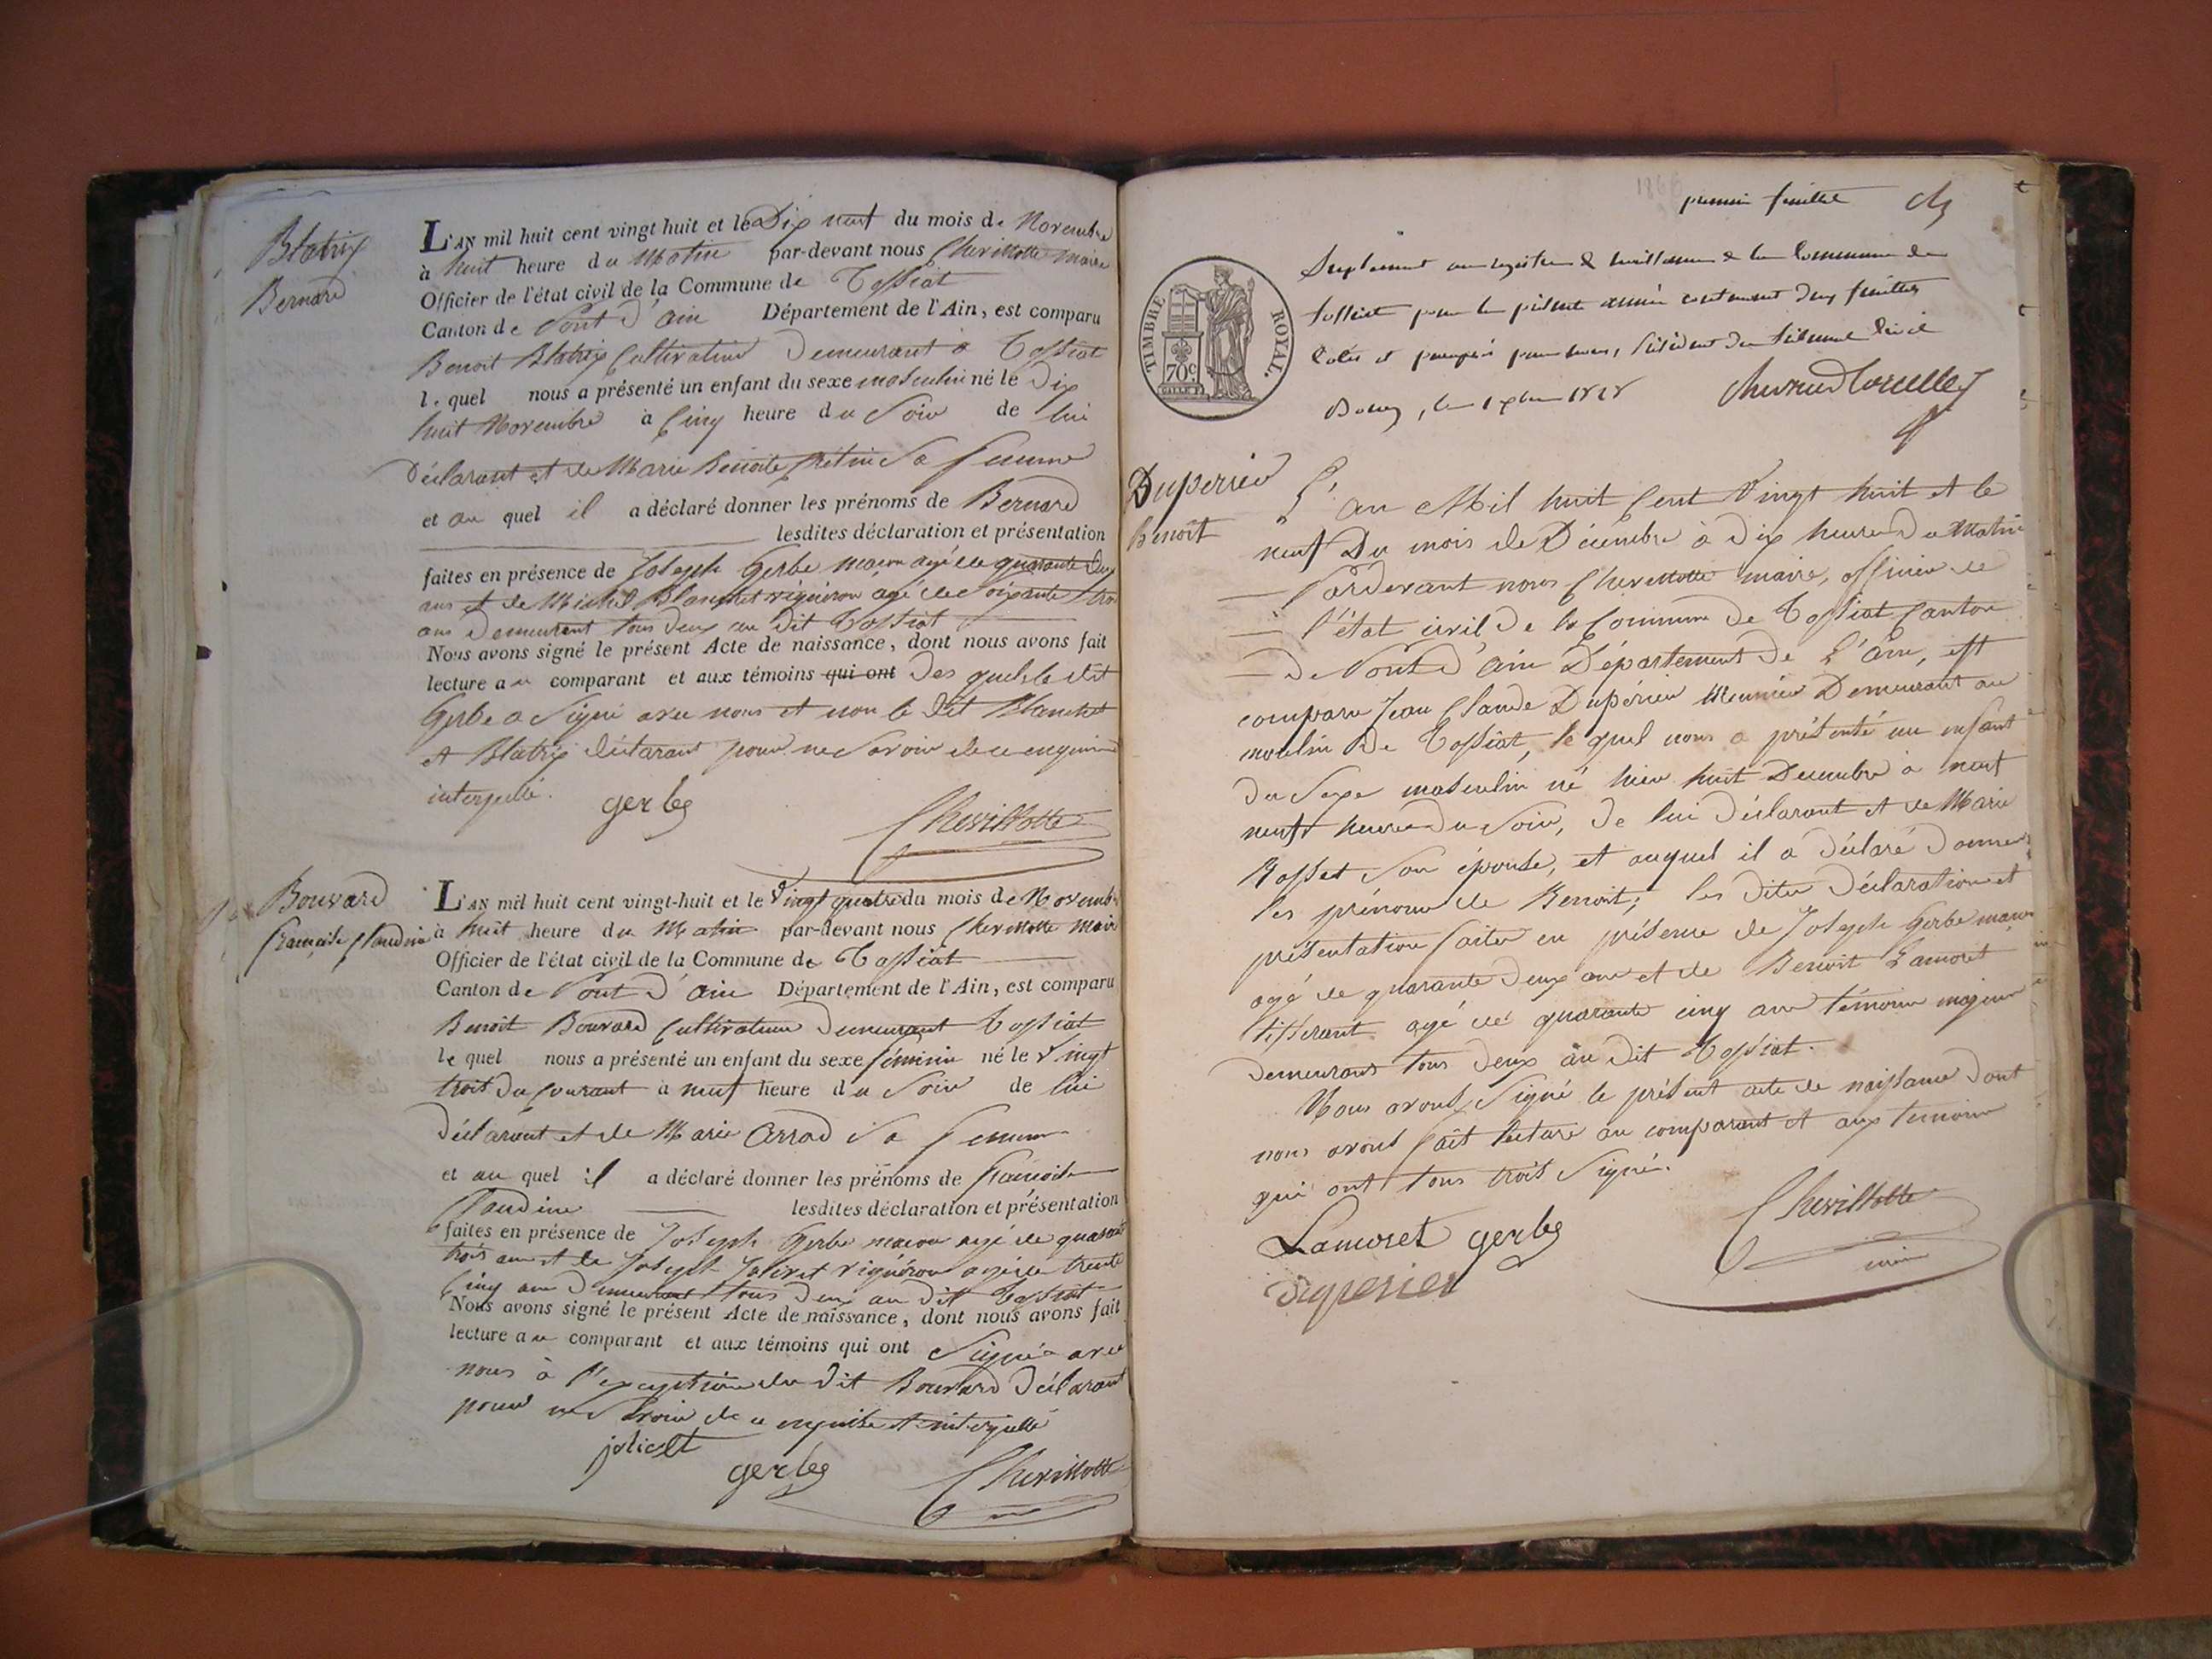 Blatrix
Bernard
L'AN mil huit cent vingt huit et le Dix neuf du mois de Novembre
à huit heure du Matin par-devant nous Chevillotte maire
Officier de l'état civil de la Commune de Tossiat
Canton de Pont d'ain Département de l'Ain, est comparu
Benoit Blatrix Cultivateur Demeurant à Tossiat
le quel nous a présenté un enfant du sexe masculin né le Dix
huit Novembre à Cinq heure du Soir de lui
Déclarant et de Marie Benoite Sa femme
et au quel il a déclaré donner les prénoms de Bernard
lesdites déclaration et présentation
faites en présence de Joseph Gerbe maçon agé de quarante deux
ans et de Michel Blanchet vigneron agé de Soixante trois
ans Demeurent tous deux au dit Tossiat
Nous avons signé le présent Acte de naissance, dont nous avons fait
lecture au comparant et aux témoins qui ont Des quels le dit
Gerbe a Signé avec nous et non le dit Blanchet
et Blatrix déclarant pour ne Savoir de ce enquis
interpellé.
gerbe
Chevillotte
Bouvard
françoise Claudine
L'AN mil huit cent vingt-huit et le Vingt quatre du mois de Novembre
à huit heure du Matin par-devant nous Chevillotte maire
Officier de l'état civil de la Commune de Tossiat
Canton de Pont d'ain Département de l'Ain, est comparu
Benoit Bouvard Cultivateur Demeurant Tossiat
le quel nous a présenté un enfant du sexe féminin né le Vingt
trois du Courant à neuf heure du Soir de lui
Déclarant et de Marie Arrad Sa femme
et au quel il a déclaré donner les prénoms de françoise
Claudine lesdites déclaration et présentation
faites en présence de Joseph Gerbe maçon agé de quarante
trois ans et de Joseph Jolivet vigneron agé de trente
Cinq ans Demeurant tous Deux au dit Tossiat
Nous avons signé le présent Acte de naissance, dont nous avons fait
lecture au comparant et aux témoins qui ont Signé avec
nous à l'exception du dit Bouvard Déclarant
pour ne Savoir de ce enquis et interpellé
jolivet
gerbe
Chevillotte
premier feuillet
TIMBRE ROYAL.
70c
Suplement au registre de naissance de la Commune de
tossiat pour la présente année contenant deux feuillets
Cotés et paraphés par nous, Président du tribunal Civil
Bourg, le 1828
Duperier
Benoit
L'an Mil huit Cent Vingt huit et le
neuf Du mois de Décembre à dix heure du Matin
Pardevant nous Chevillotte maire, officier de
l'état civil de la Commune de Tossiat Canton
de Pont d'ain Département de L'ain, est
comparu Jean Claude Dupérier Meunier Demeurant au
moulin de Tossiat, le quel nous a présenté un enfant
du Sexe masculin né hier huit Decembre à
neuf heure du Soir, de lui Déclarant et de Marie
Rosset Son épouse, et auquel il a déclaré donner
les prénoms de Benoit; les dites Déclaration et
présentation faites en présence de Joseph Gerbe maçon
agé de quarante Deux ans et de Benoit Lamoret
tisserant agé de quarante cinq ans témoins majeurs
demeurans tous deux au dit Tossiat.
Nous avons Signé le présent acte de naissance dont
nous avons fait lecture au comparant et aux temoins
qui ont tous trois Signé.
Lamoret gerbe
duperier
Chevillotte
maire